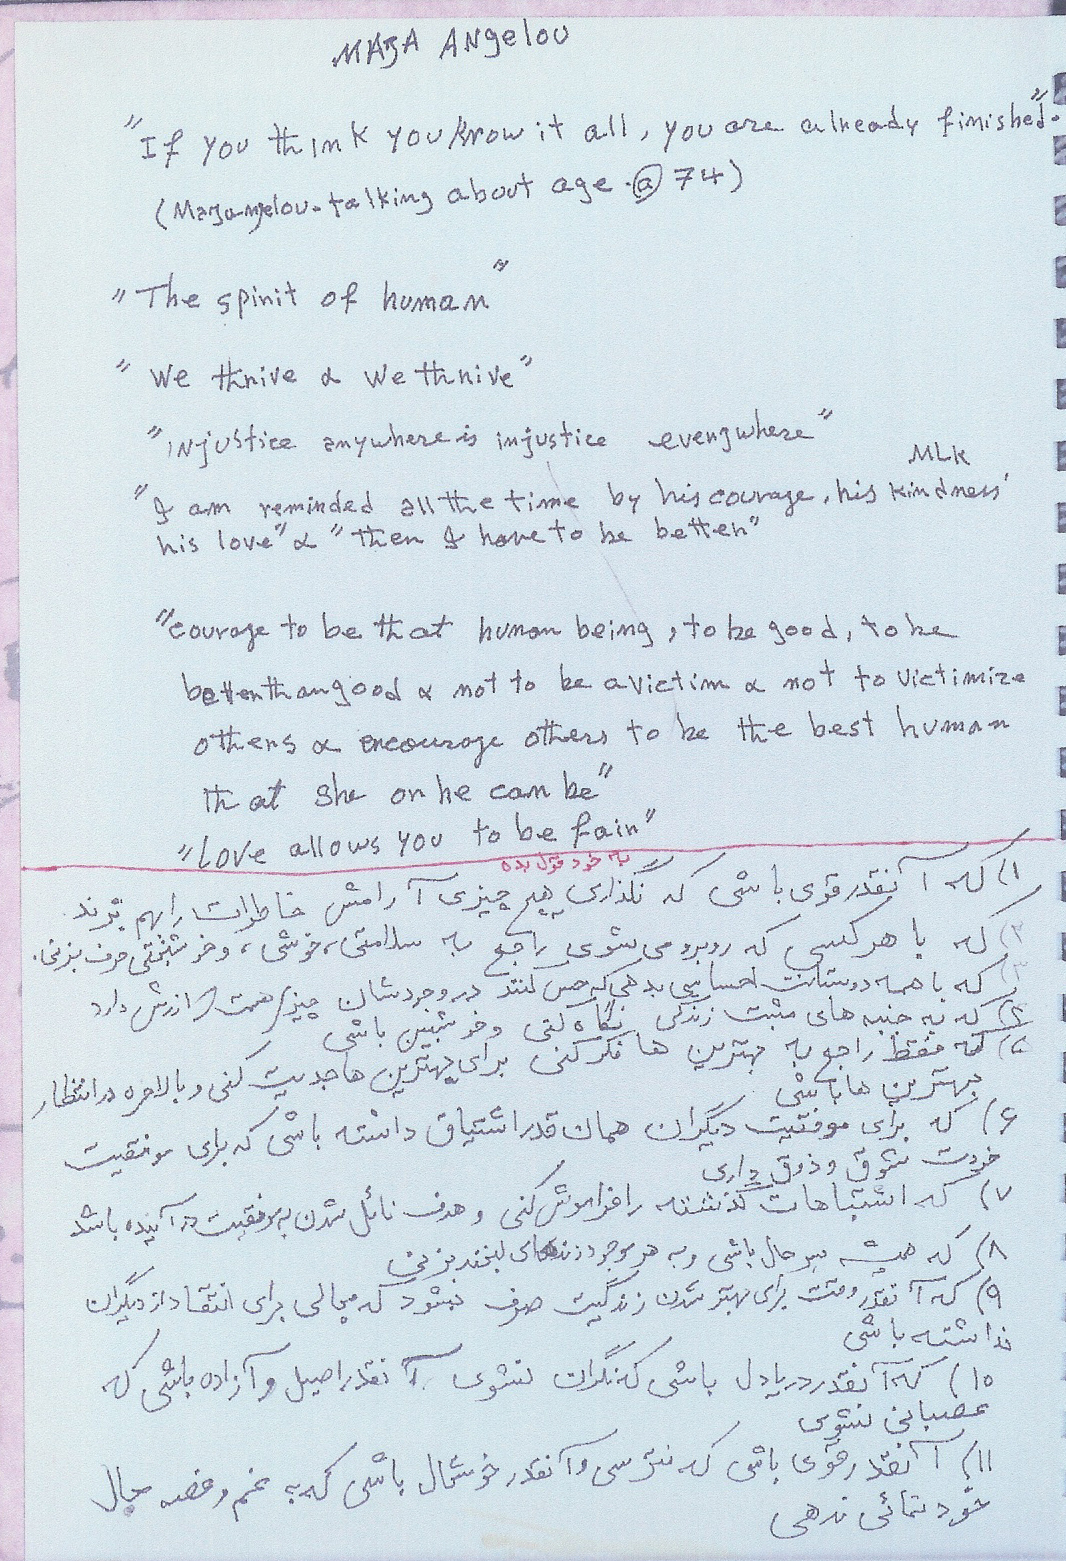 MAYA ANgelou
"If you think you know it all, you are already finished".
(Maya angelou - talking about age @ 74)
"The spirit of human"
"We thrive & We thrive"
"INjustice anywhere is injustice everywhere"
MLK
"I am reminded all the time by his courage, his kindness
his love" & "then I have to be better"
"courage to be that human being, to be good, to be
better than good & not to be a victim & not to victimize
others & encourage others to be the best human
that she or he can be"
"Love allows you to be fair"
به خود قول بده
۱) که آنقدر قوی باشی که نگذاری هیچ چیزی آرامش خاطرات را بهم بزند
۲) که با هر کسی که روبرو می شوی راجع به سلامتی، خوشی، و خوشبختی حرف بزنی.
۳) که با همه دوستانت احساسی بدهی که حس کنند در وجودشان چیز همت ارزش دارد
۴) که به جنبه های مثبت زندگی نگاه کنی و خوشبین باشی
۵) که فقط راجع به بهترین ها فکر کنی برای بهترین ها جدیت کنی و بالاخره در انتظار
بهترین ها باشی
۶) که برای موفقیت دیگران همان قدر اشتیاق داشته باشی که برای موفقیت
خودت شوق و ذوق داری
۷) که اشتباهات گذشته را فراموش کنی و هدف نائل شدن به موفقیت در آینده باشد
۸) که همیشه سر حال باشی و به هر موجود زنده ای لبخند بزنی
۹) که آنقدر وقت برای بهتر شدن زندگیت صرف نبشود که مجالی برای انتقاد از دیگران
نداشته باشی
۱۰) که آنقدر دریادل باشی که نگران نشوی آنقدر اصیل و آزاده باشی که
عصبانی نشوی
۱۱) آنقدر قوی باشی که نترسی و آنقدر خوشحال باشی که به غم و غصه مجال
خود نمائی ندهی